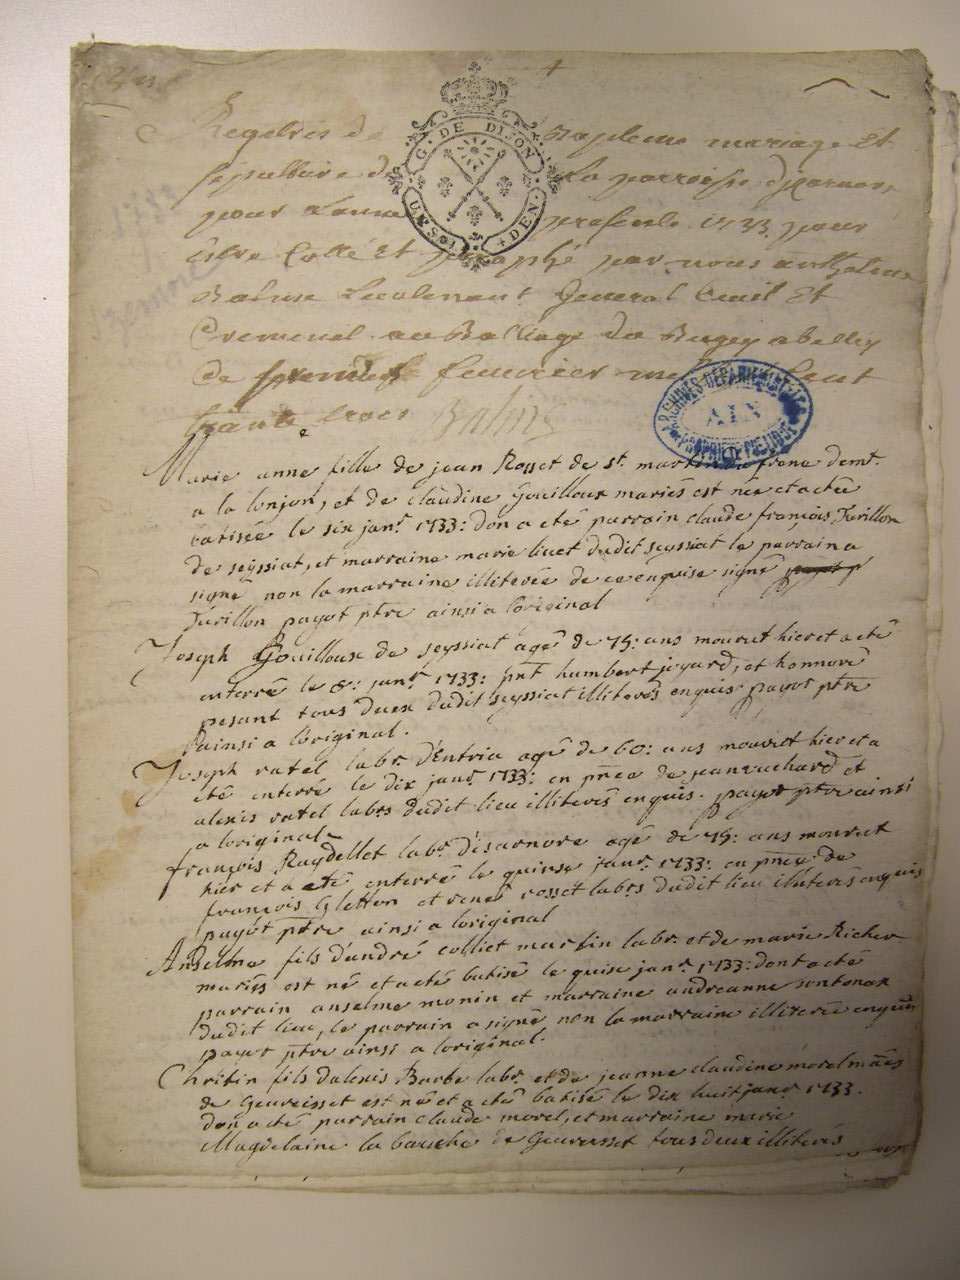 G. DE DIJON
Registre de Bapteme mariage Et
sepulture de La parroisse d'izernore
pour Lannee presente 1733 pour
estre Cotté Et paraphé par nous anthelme
Balme Lieutenant General Civil Et
Criminel au Balliage du Bugey a belley
Le premier feuvrier mil sept Cent
trante trois Balme
ARCHIVES DÉPARTEMENTALES
AIN
PROPRIÉTÉ PUBLIQUE
Marie anne fille de jean Rosset de st. martin du frene demt.
a la lonjon, et de claudine Gouilloux mariés est née et a éte
batisée le six janr. 1733: don a cté parrain claude françois Favillon
de seyssiat, et marraine marie livet dudit seyssiat le parrain a
signé non la marraine illiterée de ce enquise signé
payot ptre ainsi a loriginal
Joseph Gouilloux de seyssiat agé de 75: ans mourut hier et a eté
enterré le 8: janr. 1733: pnt humbert joyard, et honnoré
pesant tous deux dudit seyssiat illiterés enquis payot ptre
ainsi a loriginal.
Joseph ratel labr. d'Entria agé de 60: ans mourut hier et a
eté enterré le dix janr. 1733: en pnce de jean ruchard et
alexis ratel labrs dudit lieu illiterés enquis. payot ptre ainsi
a loriginal
françois Raydellet labr. d'isarnore agé de 75: ans mourut
hier et a eté enterré le quinse janr. 1733: en pnce: de
françois Gletton et rené rosset labrs dudit lieu illiteres enquis
payot ptre ainsi a loriginal
Anselme fils d'andré colliet martin labr. et de marie Richer
mariés est né et a eté batisé le quise janr. 1733: dont a eté
parrain anselme monin et marraine andreanne sontonax
dudit lieu, le parrain a signé non la marraine illiterée enquise
payot ptre ainsi a loriginal.
Christin fils d'alexis Barbe labr. et de jeanne claudine morel mariés
de Geuvreisset est né et a eté batisé le dix huit janr. 1733.
don a eté parrain claude morel, et marraine marie
Magdelaine la bauche de Geuvresset tous deux illiterés